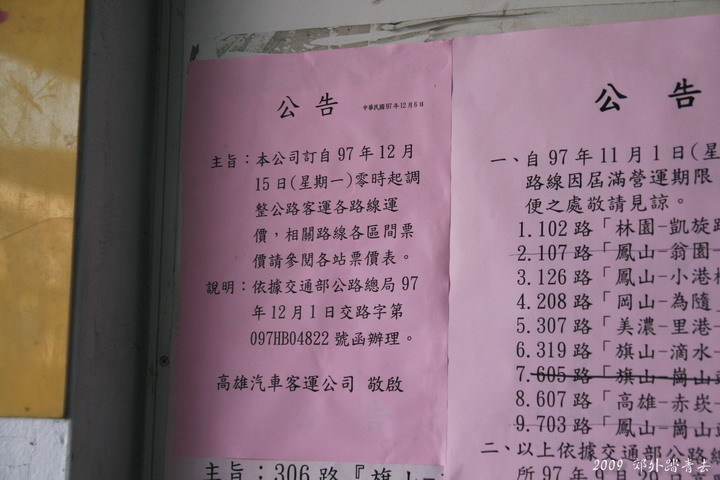 公告 中華民國97年12月8日
主旨：本公司訂自97年12月
15日(星期一)零時起調
整公路客運各路線運
價，相關路線各區間票
價請參閱各站票價表。
說明：依據交通部公路總局97
年12月1日交路字第
097HB04822號函辦理。
高雄汽車客運公司 敬啟
主旨：306路『旗山-
公告
一、自97年11月1日(星
路線因屆滿營運期限
便之處敬請見諒。
1.102路「林園-凱旋路
2.107路「鳳山-翁園-
3.126路「鳳山-小港
4.208路「岡山-為隨
5.307路「美濃-里港-
6.319路「旗山-滴水-
7.605路「旗山-崗山
8.607路「高雄-赤崁-
9.703路「鳳山-崗山
二、以上依據交通部公路總
所97年9月20日
2009 郊外踏青去